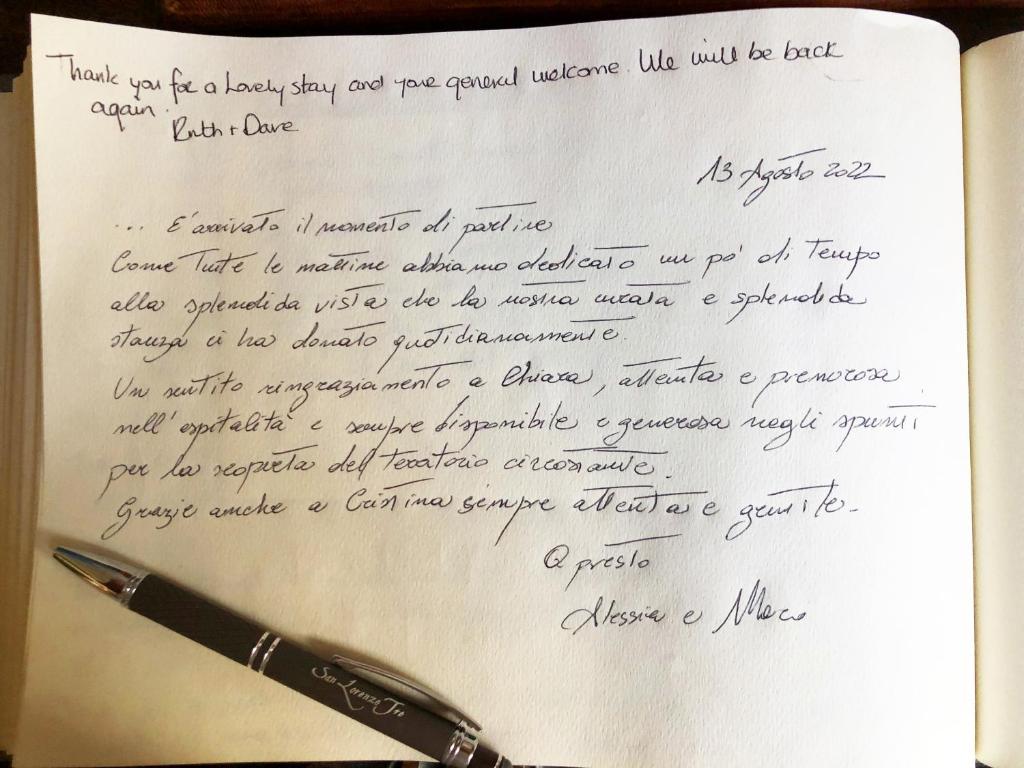 Thank you for a Lovely stay and your general welcome. We will be back
again.
Ruth + Dave
13 Agosto 2022
... E' arrivato il momento di partire
Come tutte le mattine abbiamo dedicato un po' di tempo
alla splendida vista che la nostra curata e splendida
stanza ci ha donato quotidianamente.
Un sentito ringraziamento a Chiara, attenta e premurosa
nell'ospitalità e sempre disponibile e generosa negli spunti
per la scoperta del territorio circostante.
Grazie anche a Cristina sempre attenta e gentile.
A presto
Alessia e
San Lorenzo